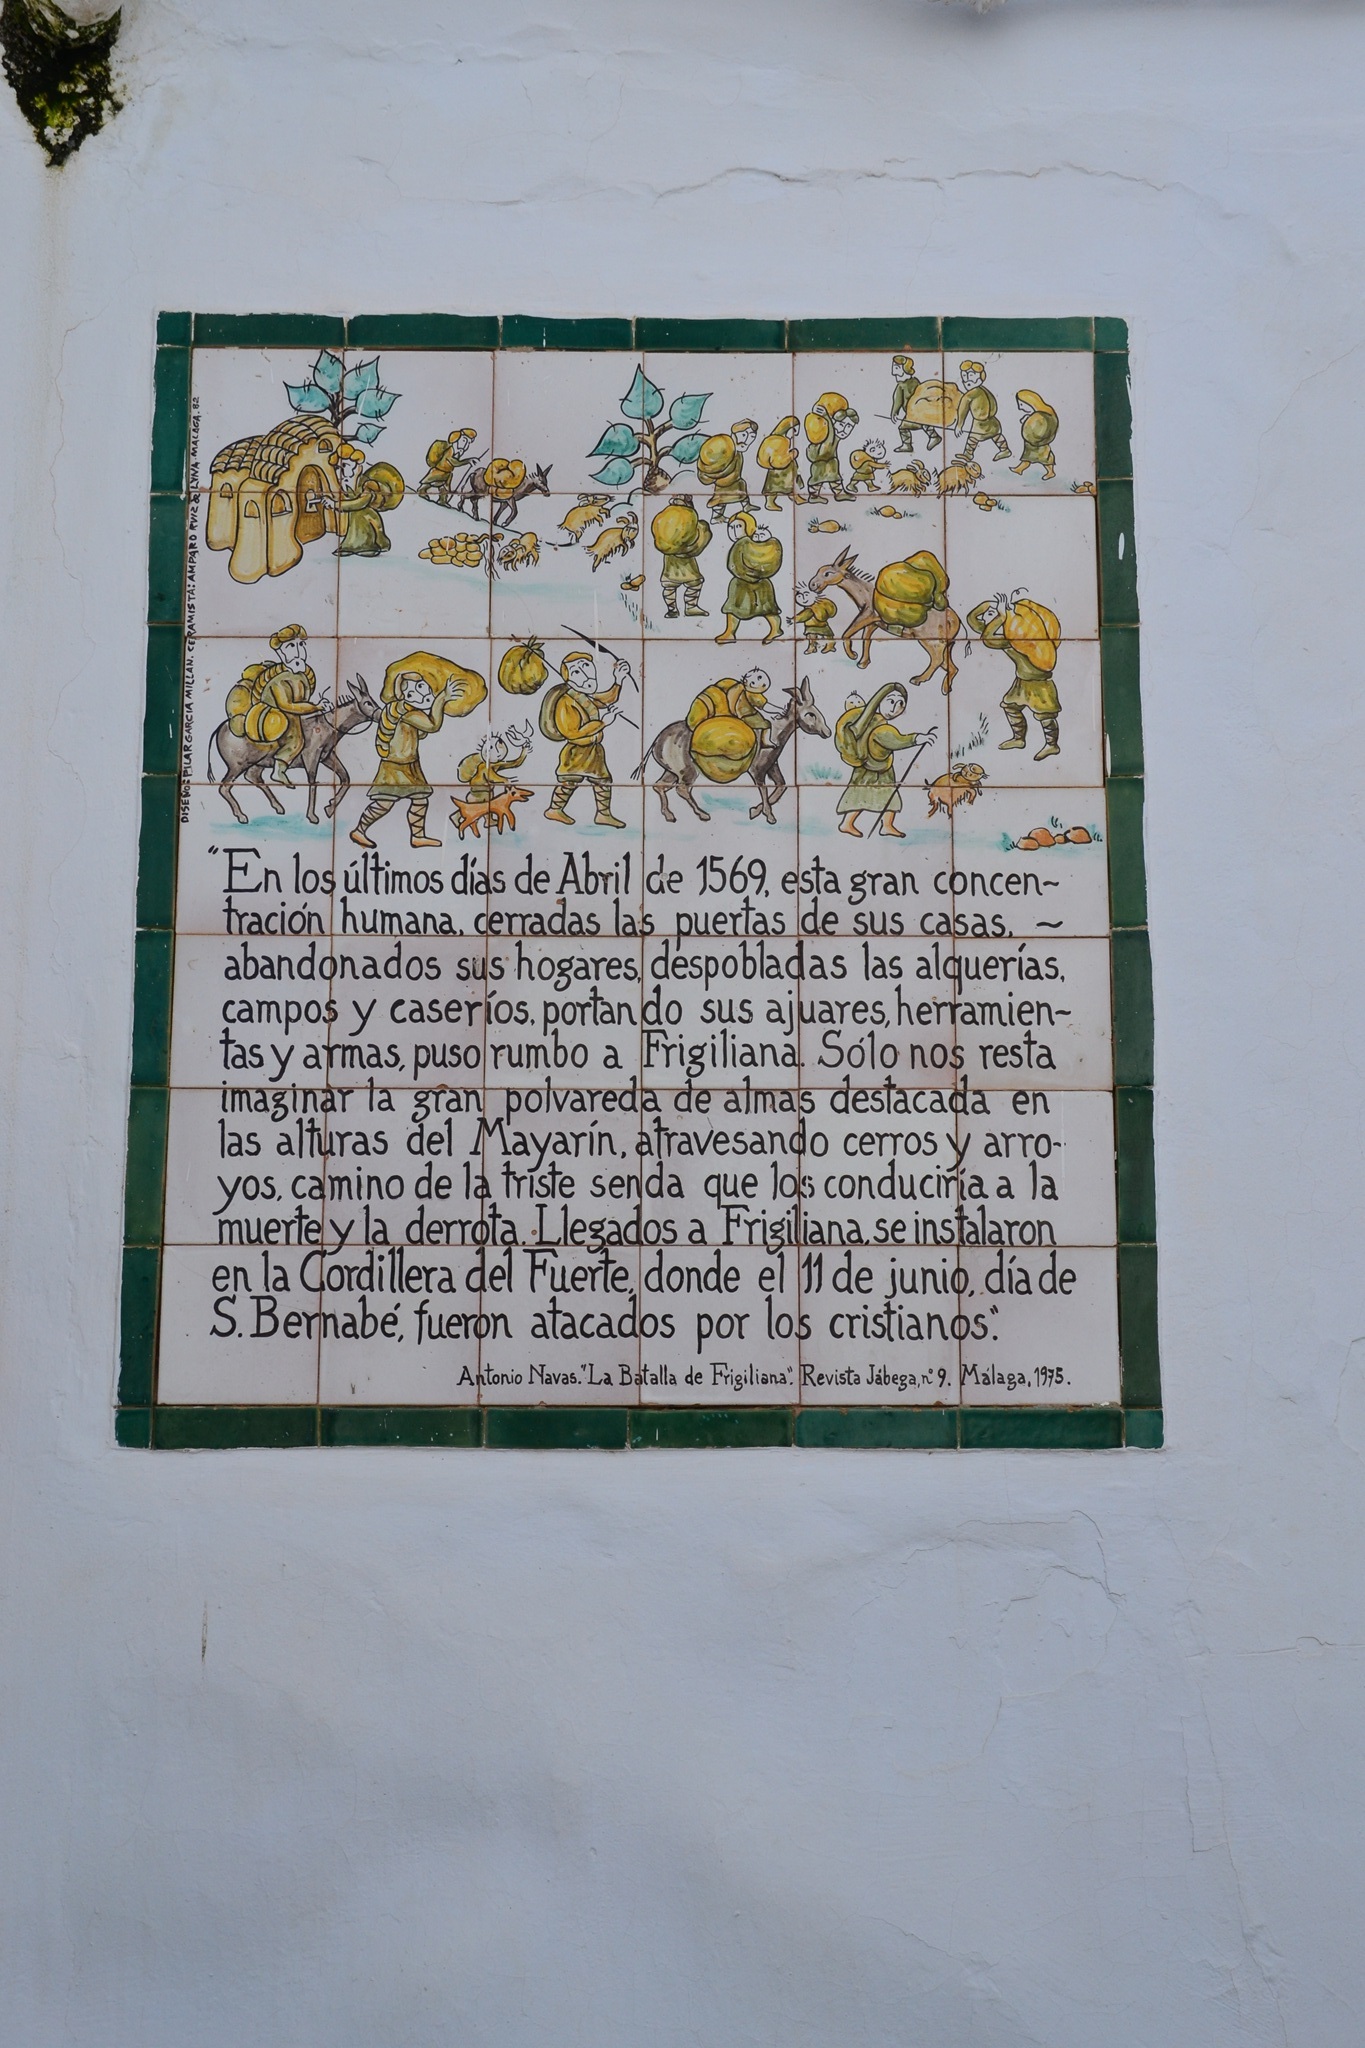 DISEÑO: PILAR GARCIA MILLAN. CERAMISTA: AMPARO RUIZ de LUNA. MALAGA. 82
"En los últimos días de Abril de 1569, esta gran concen~
tración humana, cerradas las puertas de sus casas, ~
abandonados sus hogares, despobladas las alquerías,
campos y caseríos, portando sus ajuares, herramien~
tas y armas, puso rumbo a Frigiliana. Sólo nos resta
imaginar la gran polvareda de almas destacada en
las alturas del Mayarín, atravesando cerros y arro-
yos, camino de la triste senda que los conduciría a la
muerte y la derrota. Llegados a Frigiliana, se instalaron
en la Cordillera del Fuerte, donde el 11 de junio, día de
S. Bernabé, fueron atacados por los cristianos."
Antonio Navas. "La Batalla de Frigiliana". Revista Jábega, nº 9. Málaga, 1975.